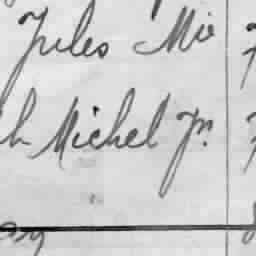 Jules Mie
h Michel Jr.